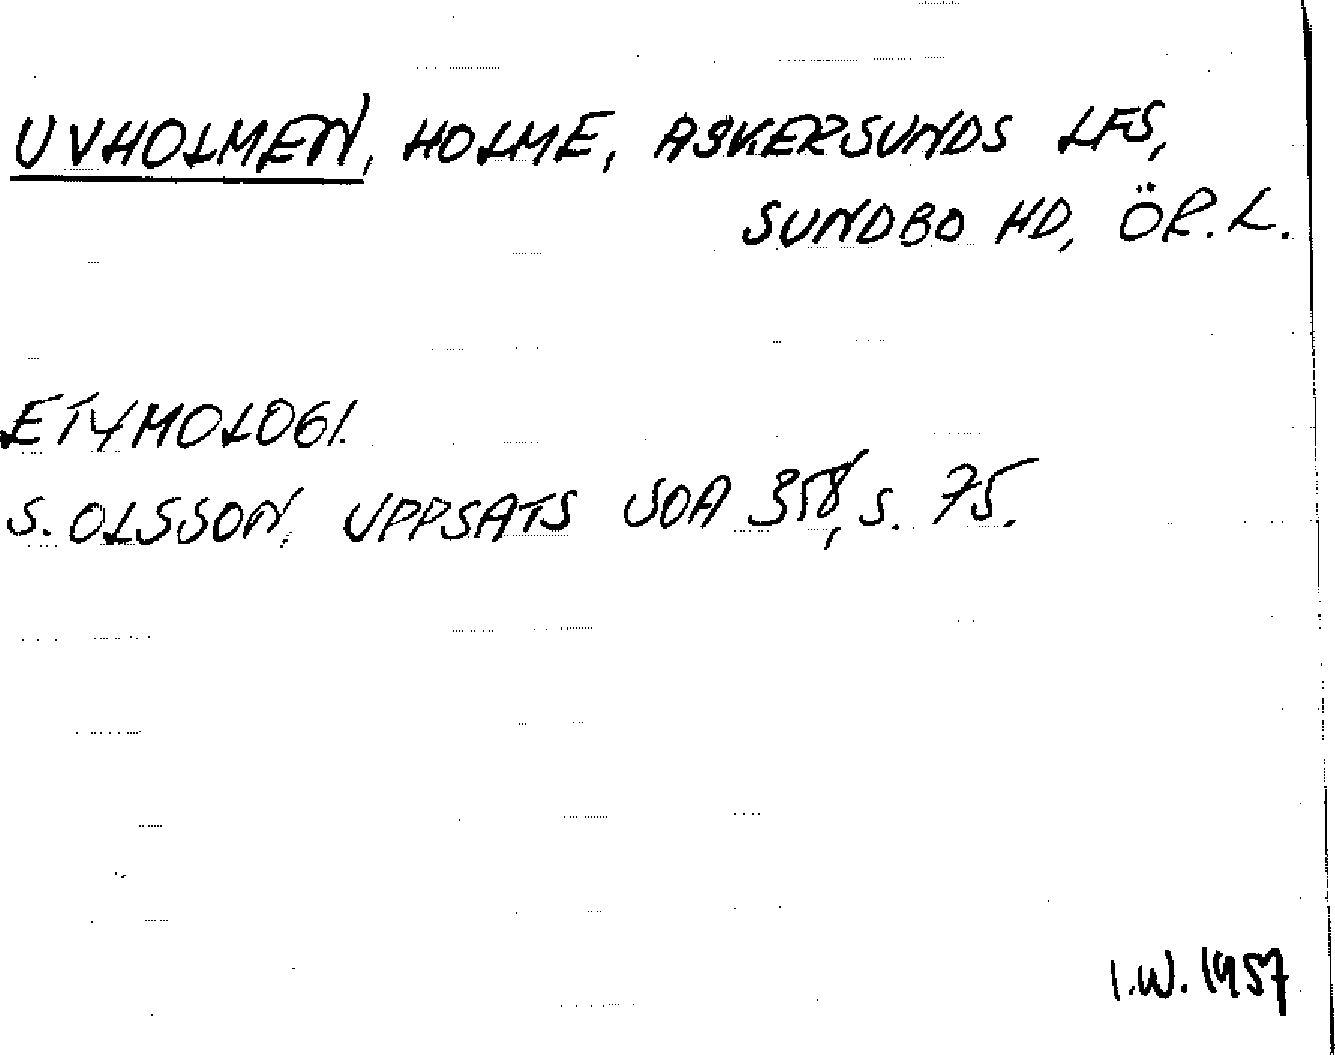 UVHOLMEN, HOLME, ASKERSUNDS LFS,
SUNDBO HD, ÖR.L.
ETYMOLOGI.
S. OLSSON, UPPSATS UOA 358, s. 75.
I.W. 1957